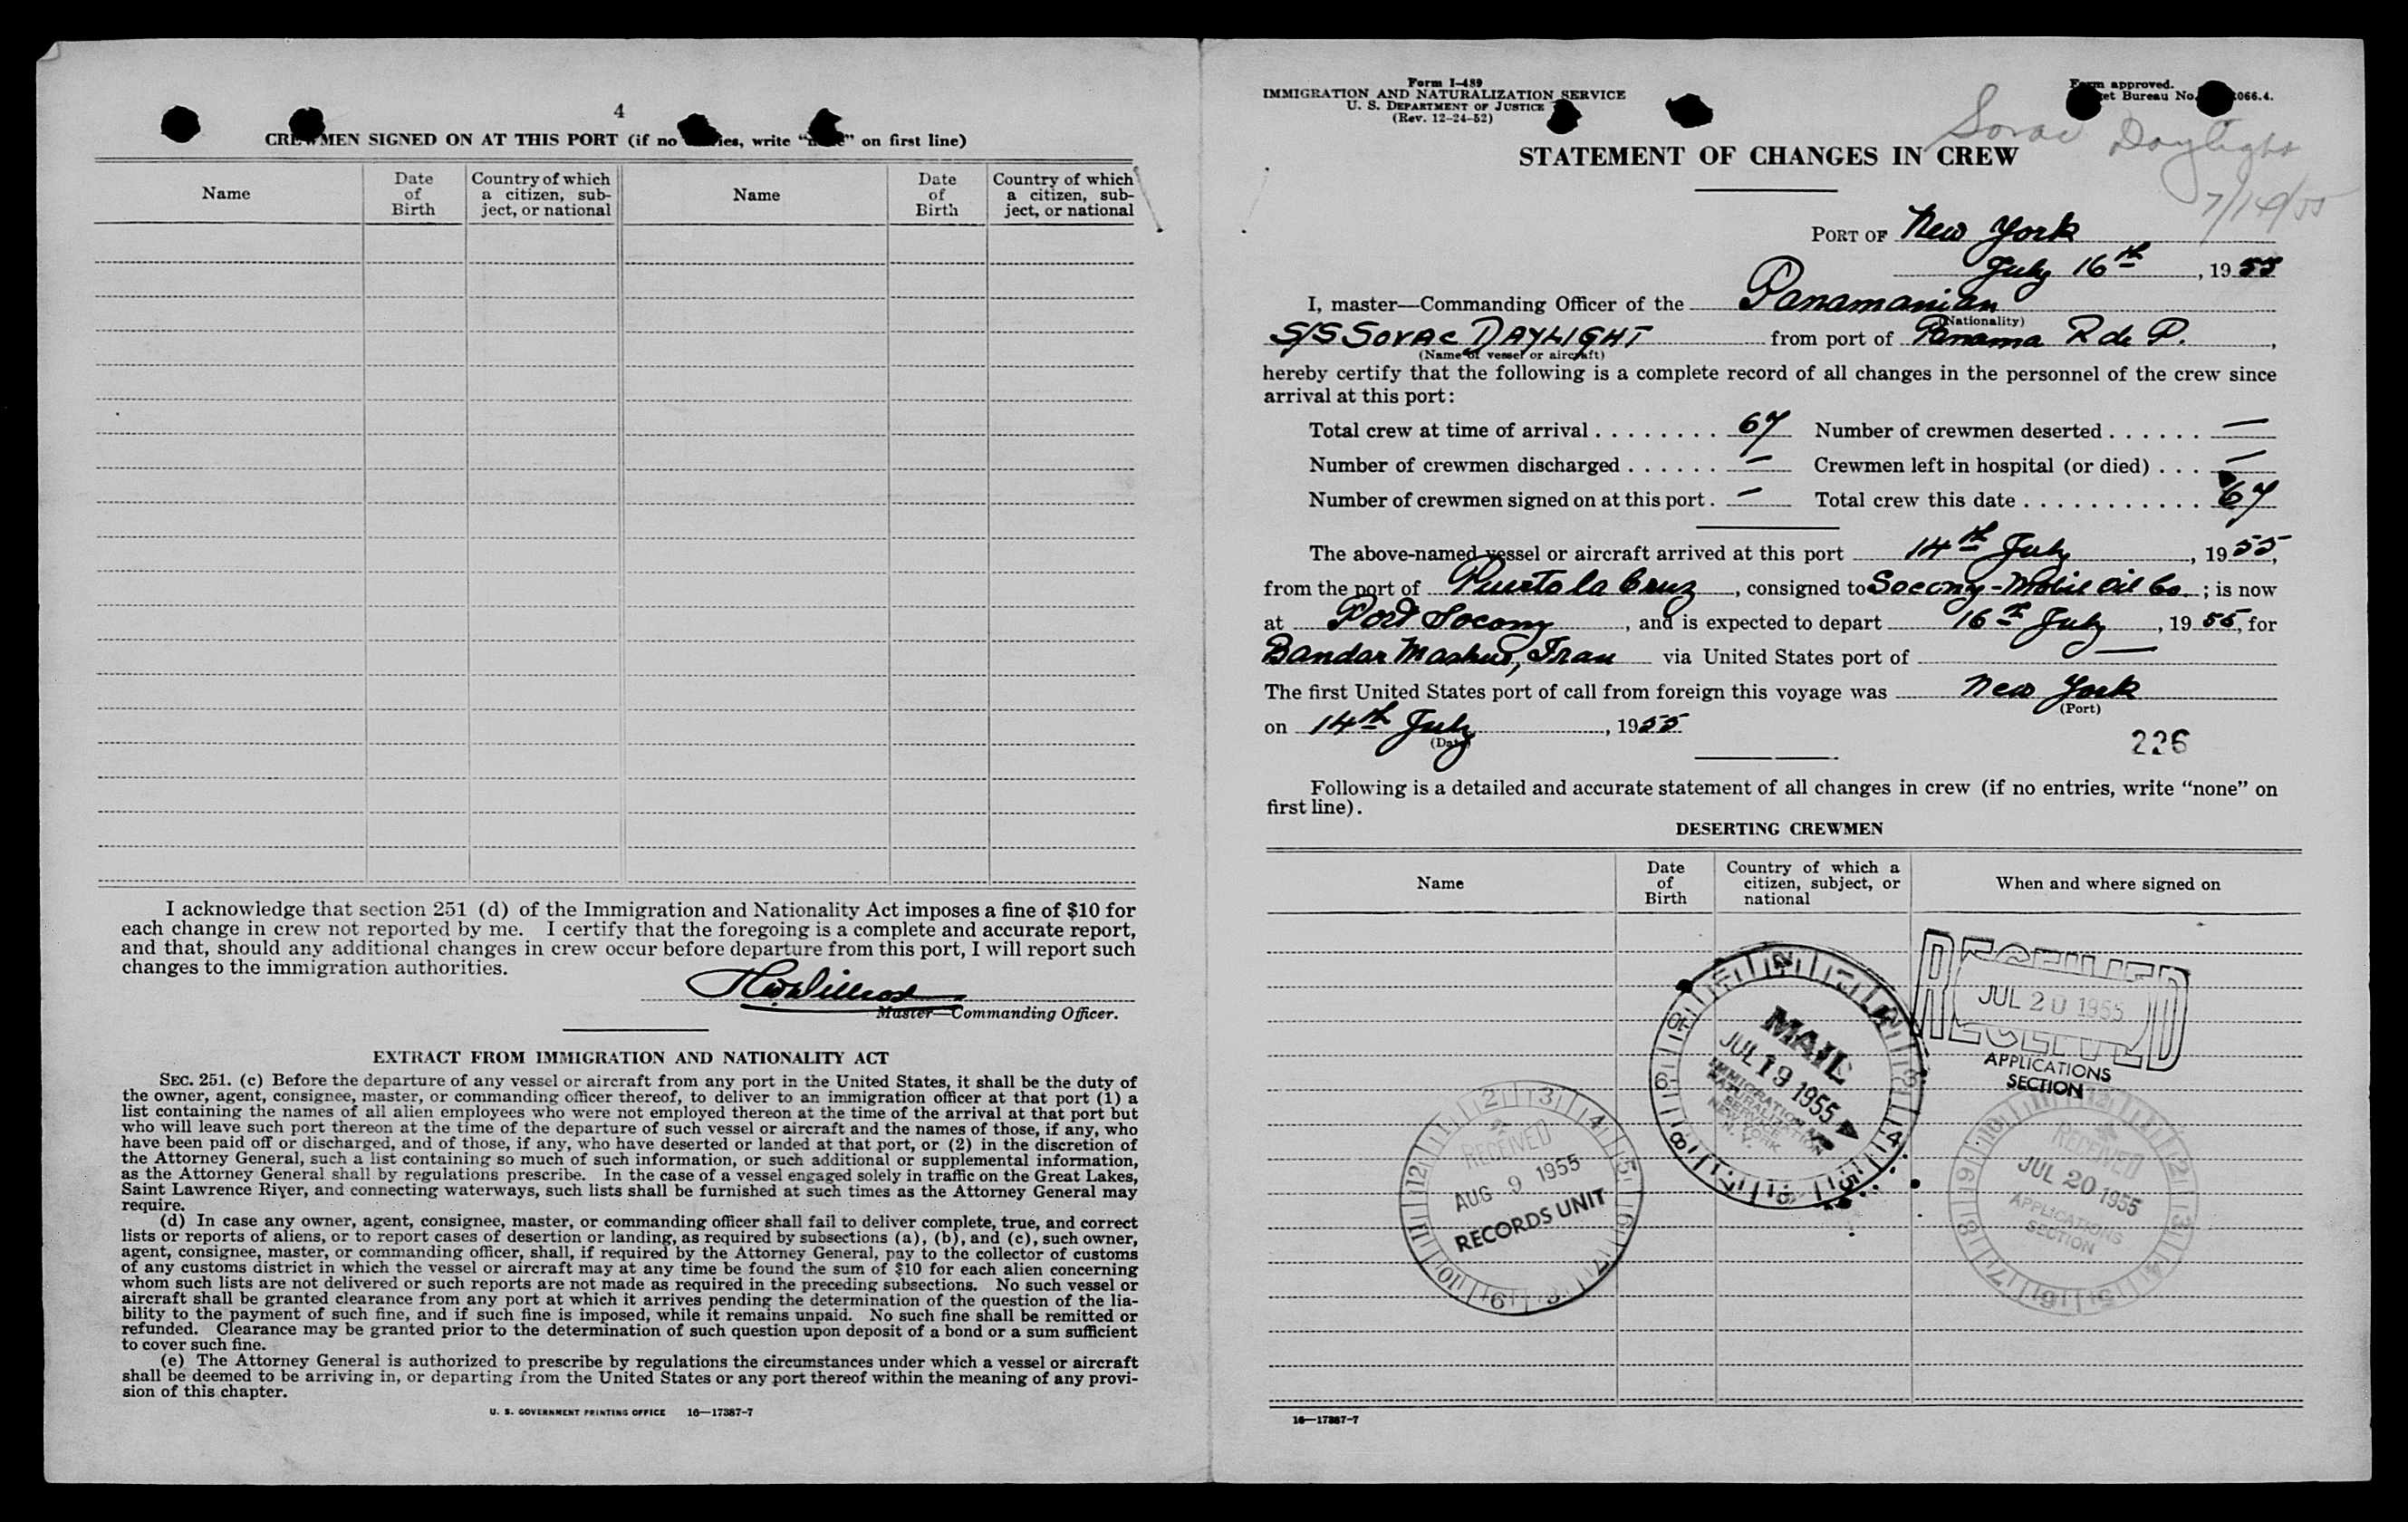 4
CREWMEN SIGNED ON AT THIS PORT (if no entries, write "none" on first line)
Name
Date of Birth
Country of which a citizen, subject, or national
Name
Date of Birth
Country of which a citizen, subject, or national
I acknowledge that section 251 (d) of the Immigration and Nationality Act imposes a fine of $10 for
each change in crew not reported by me. I certify that the foregoing is a complete and accurate report,
and that, should any additional changes in crew occur before departure from this port, I will report such
changes to the immigration authorities.
Master—Commanding Officer.
EXTRACT FROM IMMIGRATION AND NATIONALITY ACT
SEC. 251. (c) Before the departure of any vessel or aircraft from any port in the United States, it shall be the duty of
the owner, agent, consignee, master, or commanding officer thereof, to deliver to an immigration officer at that port (1) a
list containing the names of all alien employees who were not employed thereon at the time of the arrival at that port but
who will leave such port thereon at the time of the departure of such vessel or aircraft and the names of those, if any, who
have been paid off or discharged, and of those, if any, who have deserted or landed at that port, or (2) in the discretion of
the Attorney General, such a list containing so much of such information, or such additional or supplemental information,
as the Attorney General shall by regulations prescribe. In the case of a vessel engaged solely in traffic on the Great Lakes,
Saint Lawrence River, and connecting waterways, such lists shall be furnished at such times as the Attorney General may
require.
(d) In case any owner, agent, consignee, master, or commanding officer shall fail to deliver complete, true, and correct
lists or reports of aliens, or to report cases of desertion or landing, as required by subsections (a), (b), and (c), such owner,
agent, consignee, master, or commanding officer, shall, if required by the Attorney General, pay to the collector of customs
of any customs district in which the vessel or aircraft may at any time be found the sum of $10 for each alien concerning
whom such lists are not delivered or such reports are not made as required in the preceding subsections. No such vessel or
aircraft shall be granted clearance from any port at which it arrives pending the determination of the question of the lia-
bility to the payment of such fine, and if such fine is imposed, while it remains unpaid. No such fine shall be remitted or
refunded. Clearance may be granted prior to the determination of such question upon deposit of a bond or a sum sufficient
to cover such fine.
(e) The Attorney General is authorized to prescribe by regulations the circumstances under which a vessel or aircraft
shall be deemed to be arriving in, or departing from the United States or any port thereof within the meaning of any provi-
sion of this chapter.
U. S. GOVERNMENT PRINTING OFFICE 16—17387-7
Form I-489
IMMIGRATION AND NATURALIZATION SERVICE
U. S. DEPARTMENT OF JUSTICE
(Rev. 12-24-52)
Form approved.
Budget Bureau No. 066.4.
Sovac Daylight
7/14/55
STATEMENT OF CHANGES IN CREW
PORT OF New York
July 16th, 1955
I, master—Commanding Officer of the Panamanian
(Nationality)
S/S SOVAC DAYLIGHT from port of Panama R de P.,
(Name of vessel or aircraft)
hereby certify that the following is a complete record of all changes in the personnel of the crew since
arrival at this port:
Total crew at time of arrival . . . . . . . . 67 Number of crewmen deserted . . . . . . —
Number of crewmen discharged . . . . . . — Crewmen left in hospital (or died) . . . —
Number of crewmen signed on at this port . — Total crew this date . . . . . . . . . . . 67
The above-named vessel or aircraft arrived at this port 14th July, 1955,
from the port of Puerto la Cruz, consigned to Socony-Mobil Oil Co.; is now
at Port Socony, and is expected to depart 16th July, 1955, for
Bandar Mashur, Iran via United States port of —
The first United States port of call from foreign this voyage was New York
(Port)
on 14th July, 1955
(Date)
226
Following is a detailed and accurate statement of all changes in crew (if no entries, write "none" on
first line).
DESERTING CREWMEN
Name
Date of Birth
Country of which a citizen, subject, or national
When and where signed on
RECEIVED
JUL 20 1955
APPLICATIONS
SECTION
MAIL
JUL 19 1955
IMMIGRATION AND
NATURALIZATION
SERVICE
NEW YORK
N. Y.
RECEIVED
AUG 9 1955
RECORDS UNIT
RECEIVED
JUL 20 1955
APPLICATIONS
SECTION
16—17387-7